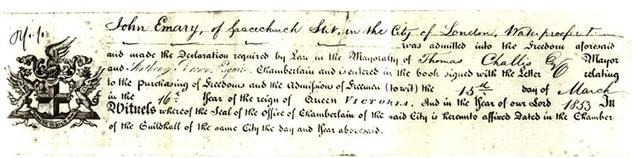 John Emary, of Gracechurch Strt, in the City of London, Waterproofer
was admitted into the Freedom aforesaid
and made the Declaration required by Law in the Mayoralty of Thomas Challis Esq Mayor
and Anthony Brown Esquire Chamberlain and is entered in the book signed with the Letter relating
to the Purchasing of Freedoms and the Admissions of Freemen (to wit) the 15th day of March
in the 16th Year of the reign of QUEEN VICTORIA, And in the Year of our Lord 1853 In
Witness whereof the Seal of the Office of Chamberlain of the said City is hereunto affixed Dated in the Chamber
of the Guildhall of the same City the day and Year abovesaid.